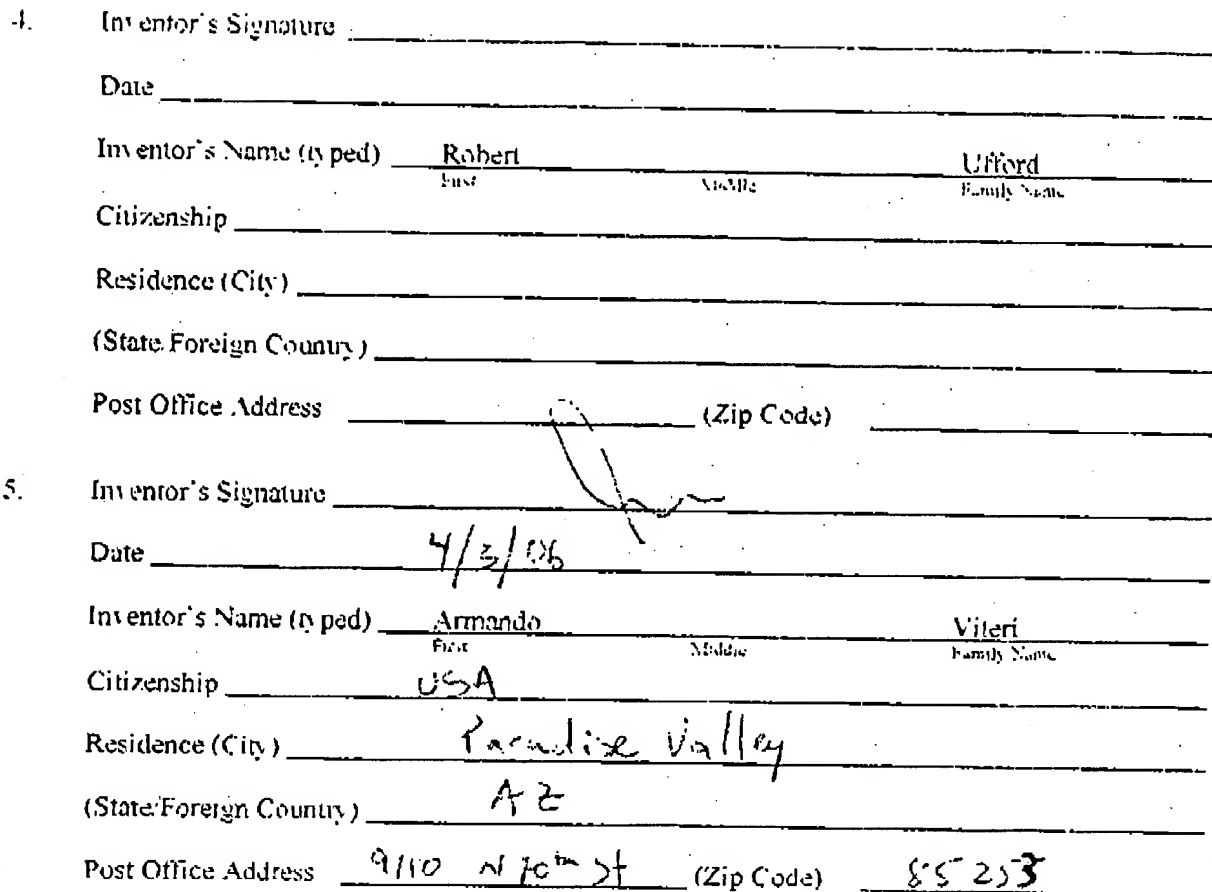 4. Inventor's Signature
Date
Inventor's Name (typed) Robert Ufford
First Middle Family Name
Citizenship
Residence (City)
(State/Foreign Country)
Post Office Address (Zip Code)
5. Inventor's Signature
Date 4/3/06
Inventor's Name (typed) Armando Viteri
First Middle Family Name
Citizenship USA
Residence (City) Paradise Valley
(State/Foreign Country) AZ
Post Office Address 9110 N St (Zip Code) 85253